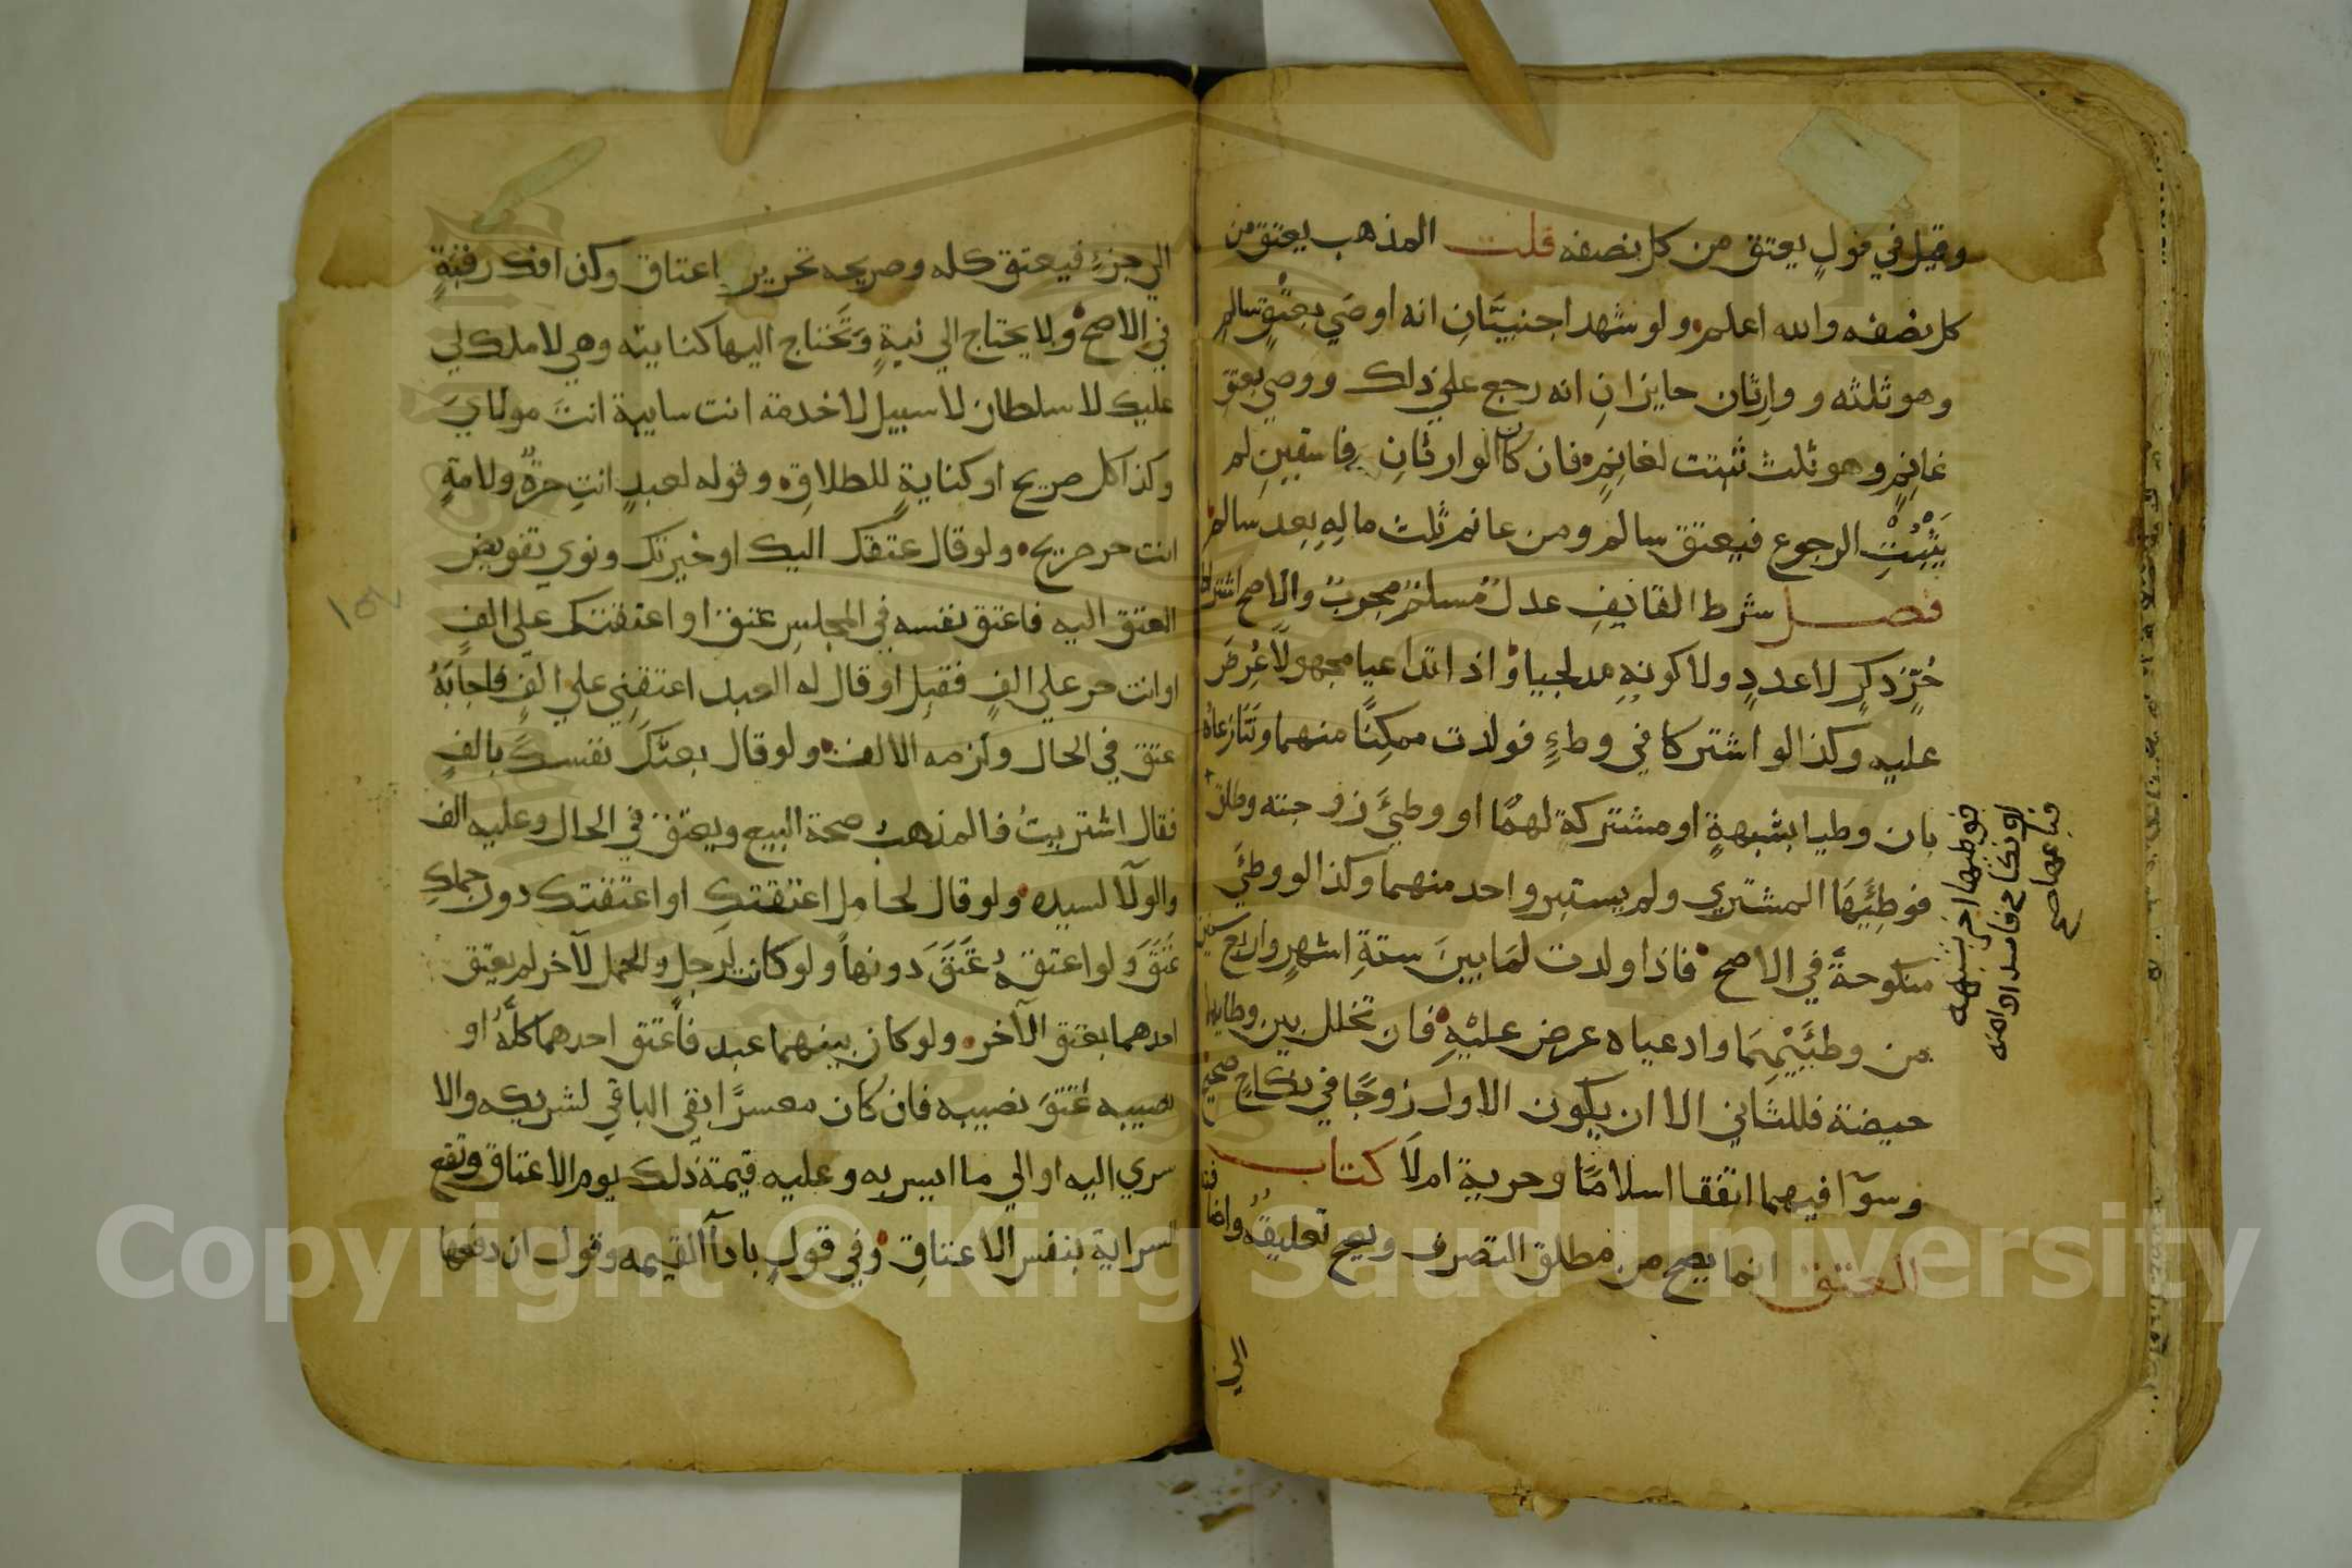 وقيل في قولٍ يعتق من كل نصفه قلت المذهب يعتق من
كل نصفه والله اعلم ولو شهد اجنبيَّانِ انه اوصَي بعِتْقِ سالمٍ
وهو ثلثه و وارِثان حايزانِ انه رجع علي ذلك ووصي بعتق
غانِمٍ وهو ثلث ثبتت لغانِمٍ فان كان الوارثانِ فاسقينِ لم
يَثْبُتِ الرجوع فيعتق سالم ومن غانم ثلث مالِهِ بعد سالم
فصل شرط القايف عدلٌ مُسلمٌ مجرِبٌ والاصح اشتراط
حُرٍّ ذكرٍ لا عددٍ ولا كونِهِ مدلجيا واذا تداعيا مجهولًا عُرِضَ
عليه وكذا لو اشتركا في وطءٍ فولدت ممكِنًا منهما وتَنَازعاه
بان وطيا بشبهةٍ او مشتركةً لهمًا او وطئَ زوجته وطلق
فوطِئَهَا المشتري ولم يستبر واحد منهما وكذا لو وطئَ
منكوحةً في الاصح فاذا ولدت لمَا بينَ ستةِ اشهرٍ واربع سنين
من وطئَيْهِمَا وادعياه عرض عليْهِ فان تخلل بين وطايهما
حيضة فللثاني الا ان يكون الاول زوجًا في نكاحٍ صحيح
وسوآ فيهما اتفقا اسلامًا وحرية ام لَا كتاب
العتق انما يصح من مطلق التصرف ويصح تعليقُهُ واضافته
الي
فوطيها اخر بشبهة
او نكاح فاسد او امته
فباعها صح
الي جزءٍ فيعتق كله وصريحه تحرير اعتاق وكذا فك رقبةٍ
في الاصح ولا يحتاج الي نيةٍ وَتَحْتاج اليها كنايته وهي لا ملك لي
عليك لا سلطان لا سبيل لا خدمة انت سايبة انتَ مولايَ
وكذا كل صريح او كنايةٍ للطلاقِ وقوله لعبدٍ انتِ حرةٌ ولامةٍ
انت حر صريح ولو قال عتقك اليك او خيرتك ونوي تفويض
العتق اليه فاعتق نفسه في المجلسِ عتق او اعتقتك علي الفٍ
او انت حر علي الفٍ فقبِل او قال له العبد اعتقنِي علي الفٍ فاجابَهُ
عتق في الحال ولَزمه الالف ولو قال بعتُكَ نفسكَ بالفٍ
فقال اشتريتُ فالمذهب صحة البيع ويعتق في الحال وعليه الف
والولآ لسيده ولو قال لحامل اعتقتك او اعتقتك دون حملك
عَتَقَ ولو اعتقهُ عَتَقَ دونها ولو كانت لرجل والحمل لآخر لم يعتق
احدهما بعتق الآخر ولو كان بينهما عبد فاعتق احدهما كلَّهُ او
نصيبه عَتَقَ نصيبه فان كان معسرًا بقي الباقي لشريكه والا
سري اليه او الي ما ايسر به وعليه قيمة ذلك يوم الاعتاق وتقع
السراية بنفس الاعتاقِ وفي قولٍ بادآ القيمه وقول ان دفعها
١٥٧
Copyright © King Saud University